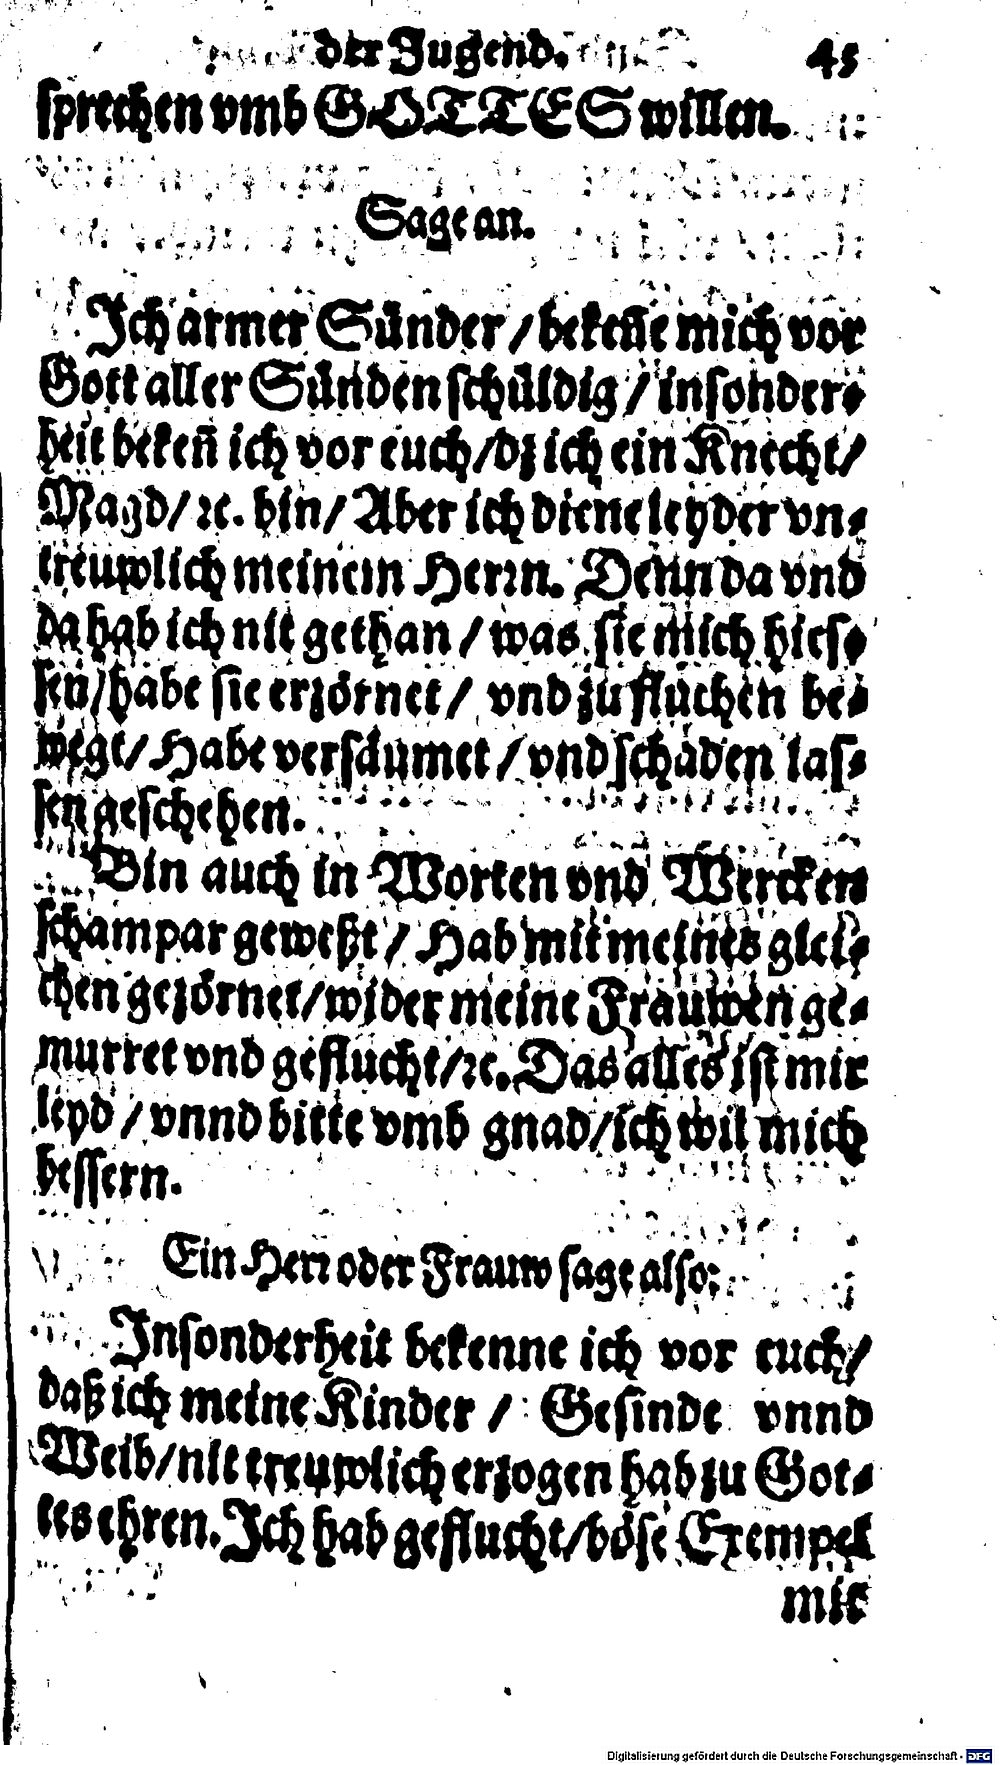 der Jugend. 45
sprechen vmb GOTTES willen.
Sage an.
Ich armer Sünder / bekeñe mich vor
Gott aller Sünden schüldig / insonder⸗
heit bekeñ ich vor euch / dz ich ein Knecht /
Magd / ꝛc. bin / Aber ich diene leyder vn⸗
treuwlich meinem Herrn. Denn da vnd
da hab ich nit gethan / was sie mich hies⸗
sen / habe sie erzörnet / vnd zu fluchen be⸗
wegt / Habe versäumet / vnd schaden las⸗
sen geschehen.
Bin auch in Worten vnd Wercken
schampar geweßt / Hab mit meines glei⸗
chen gezörnet / wider meine Frauwen ge⸗
murret vnd geflucht / ꝛc. Das alles ist mir
leyd / vnnd bitte vmb gnad / ich wil mich
bessern.
Ein Herr oder Frauw sage also:
Insonderheit bekenne ich vor euch /
daß ich meine Kinder / Gesinde vnnd
Weib / nit treuwlich erzogen hab zu Got⸗
tes ehren. Ich hab geflucht / böse Exempel
mit
Digitalisierung gefördert durch die Deutsche Forschungsgemeinschaft - DFG